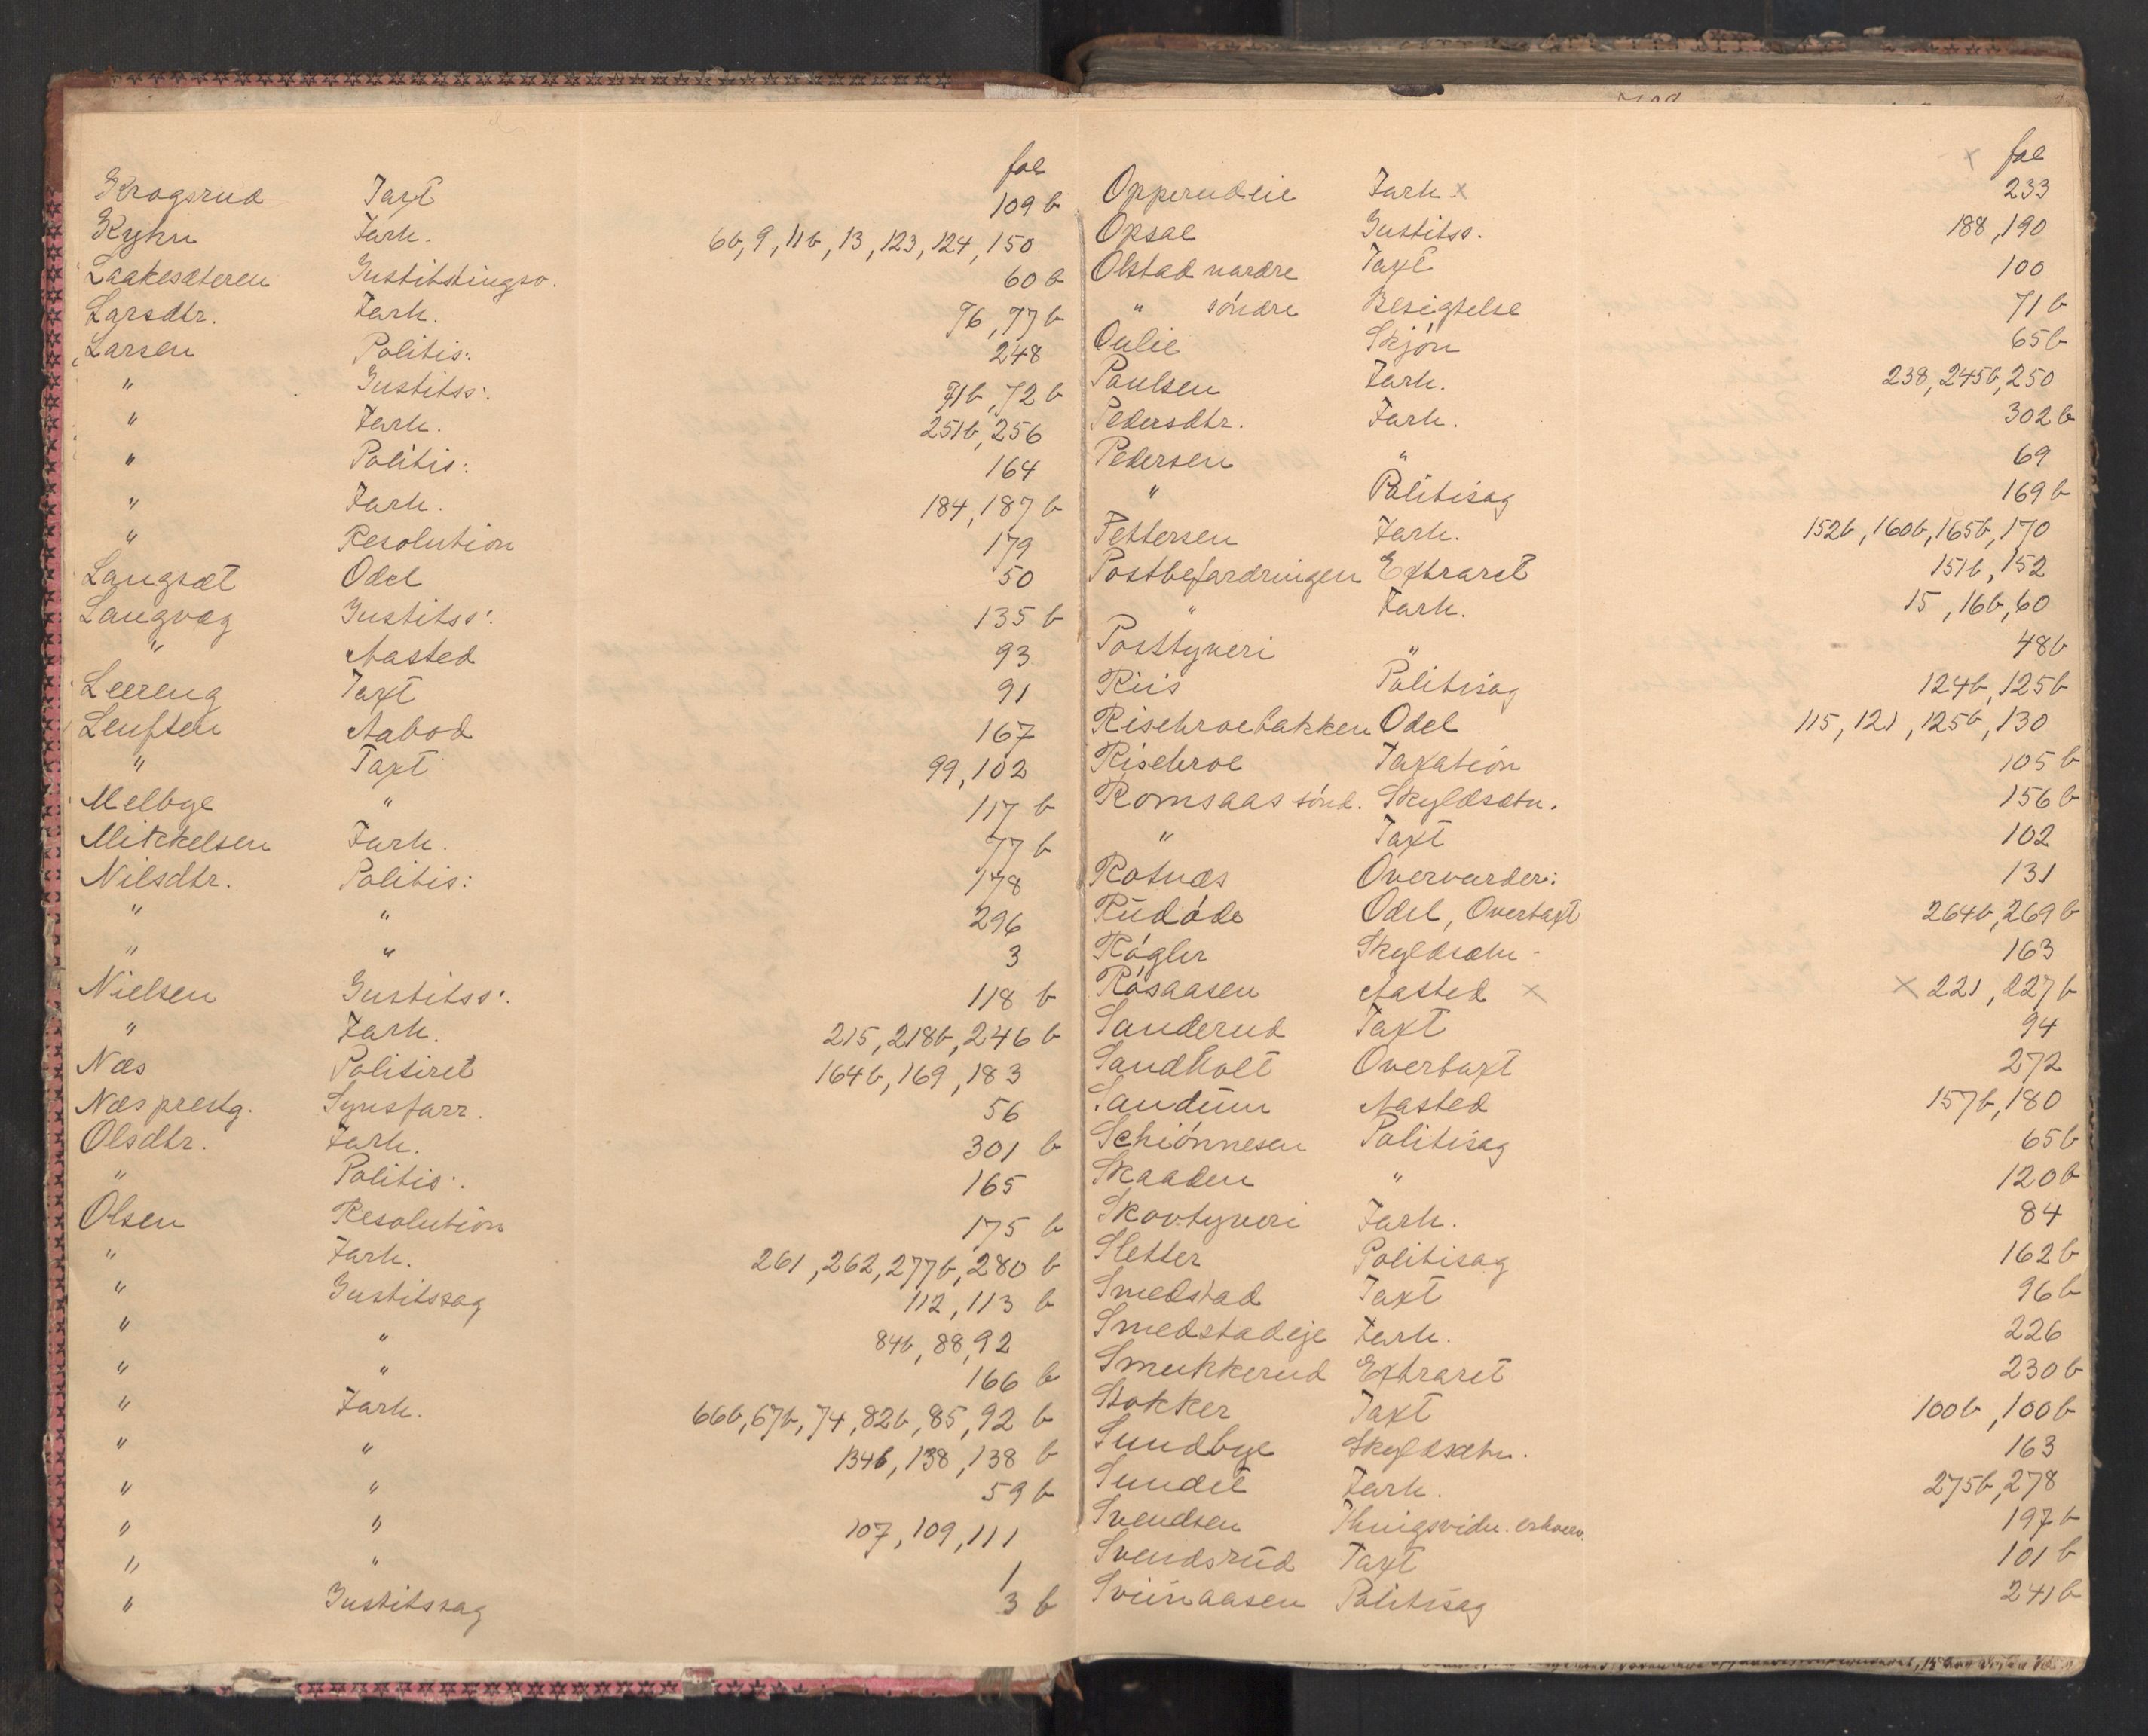 fol
Krogsrud Taxt 109 b
Kyhn Forh. 6b, 9, 11b, 13, 123, 124, 150
Laakesæteren Justitstingsv. 60 b
Larsdtr. Forh. 76, 77 b
Larsen Politis: 248
" Justitss: 71b, 72 b
" Forh. 251b, 256
" Politis: 164
" Forh. 184, 187 b
" Resolution 179
Langset Odel 50
Langvag Justitss: 135 b
" Aasted 93
Leereng Taxt 91
Leuften Aabod 167
" Taxt 99, 102
Melbye " 117 b
Mikkelsen Forh. 77 b
Nilsdtr. Politis: 178
" " 296
" " 3
Nielsen Justitss: 118 b
" Forh. 215, 218b, 246 b
Næs Politiret 164b, 169, 183
Næs prestg. Synsforr. 56
Olsdtr. Forh. 301 b
" Politis: 165
Olsen Resolution 175 b
" Forh. 261, 262, 277b, 280 b
" Justitssag 112, 113 b
" " 84b, 88, 92
" " 166 b
" Forh. 66b, 67b, 74, 82b, 85, 92 b
" " 134b, 138, 138 b
" " 59 b
" " 107, 109, 111
" " 1
" Justitssag 3 b
x fol
Opperudeie Forh. x 233
Opsal Justitss. 188, 190
Olstad nordre Taxt 100
" søndre Besigtelse 71 b
Oulie Skjøn 65b
Paulsen Forh. 238, 245b, 250
Pedersdtr. Forh. 302 b
Pedersen " 69
" Politisag 169 b
Pettersen Forh. 152b, 160b, 165b, 170
Postbefordringen Extraret 151b, 152
" Forh. 15, 16b, 60
Posttyveri " 48b
Riis Politisag 124b, 125b
Risebroebakken Odel 115, 121, 125b, 130
Risebroe Taxation 105 b
Romsaas sönd. Skyldsætn. 156 b
" Taxt 102
Rotnæs Overvurder: 131
Rudöde Odel, Overtaxt 264b, 269 b
Rögler Skyldsætn. 163
Rösaasen Aasted x x 221, 227 b
Sanderud Taxt 94
Sandholt Overtaxt 272
Sandum Aasted 157b, 180
Schiönnesen Politisag 65b
Skaaden " 120b
Skovtyveri Forh. 84
Sletter Politisag 162b
Smedstad Taxt 96b
Smedstadeje Forh. 226
Smukkerud Extraret 230b
Stokker Taxt 100b, 100b
Sundbye Skyldsætn. 163
Sundet Forh. 275b, 278
Svendsen Thingsvidn. erhverv. 197 b
Svendsrud Taxt 101 b
Sviinaasen Politisag 241b